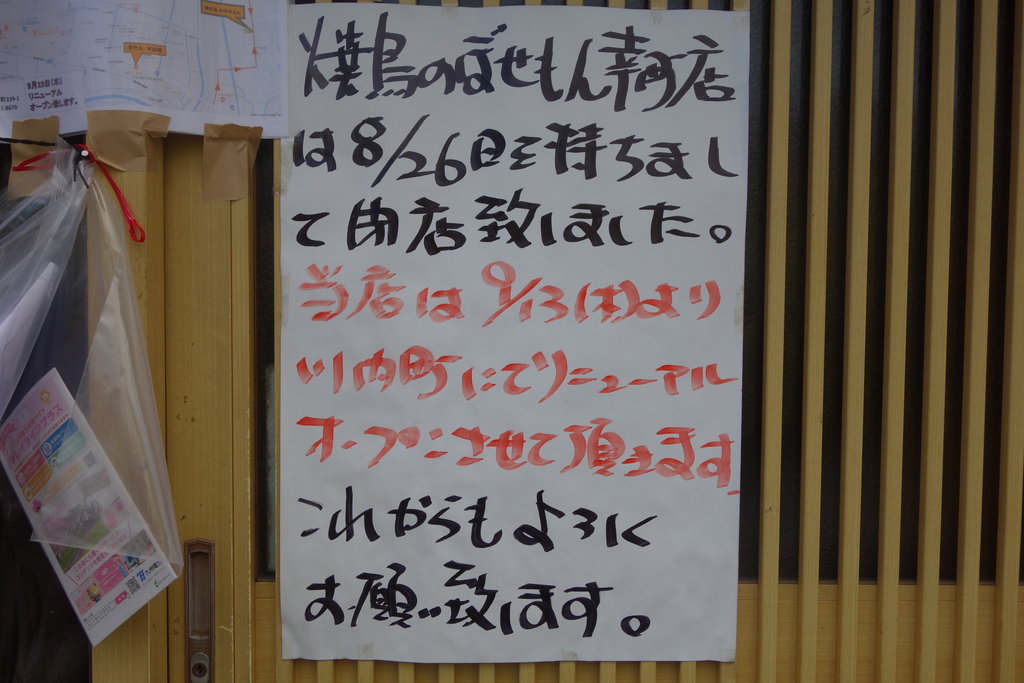 9月13日(木)
リニューアル
オープン致します。
焼鳥のぼせもん幸町店
は8/26日を持ちまし
て閉店致しました。
当店は9/13(木)より
川内町にてリニューアル
オープンさせて頂きます
これからもよろしく
お願い致します。